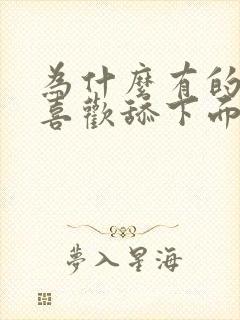 為什麼有的
喜歡舔下面
夢入星海